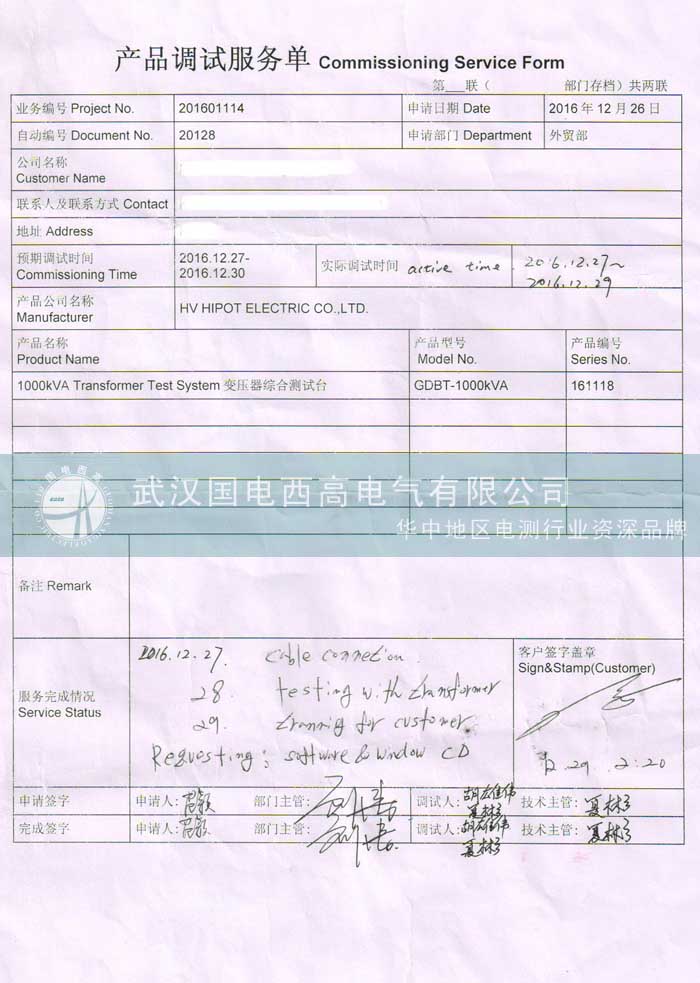 产品调试服务单 Commissioning Service Form
第___联（ 部门存档）共两联
业务编号 Project No. 201601114 申请日期 Date 2016 年 12 月 26 日
自动编号 Document No. 20128 申请部门 Department 外贸部
公司名称
Customer Name
联系人及联系方式 Contact
地址 Address
预期调试时间
Commissioning Time
2016.12.27-
2016.12.30
实际调试时间 active time. 2016.12.27~
2016.12.29
产品公司名称
Manufacturer
HV HIPOT ELECTRIC CO.,LTD.
产品名称
Product Name
产品型号
Model No.
产品编号
Series No.
1000kVA Transformer Test System 变压器综合测试台 GDBT-1000kVA 161118
国电西高
武汉国电西高电气有限公司
华中地区电测行业资深品牌
备注 Remark
服务完成情况
Service Status
2016.12.27. cable connetion.
28. testing with transformer
29. tranning for customer.
Requesting: software & window CD
客户签字盖章
Sign&Stamp(Customer)
12.29. 2:20
申请签字 申请人: 部门主管: 调试人: 胡雄伟 技术主管: 夏林
夏林
完成签字 申请人: 部门主管: 调试人: 胡雄伟 技术主管: 夏林
夏林